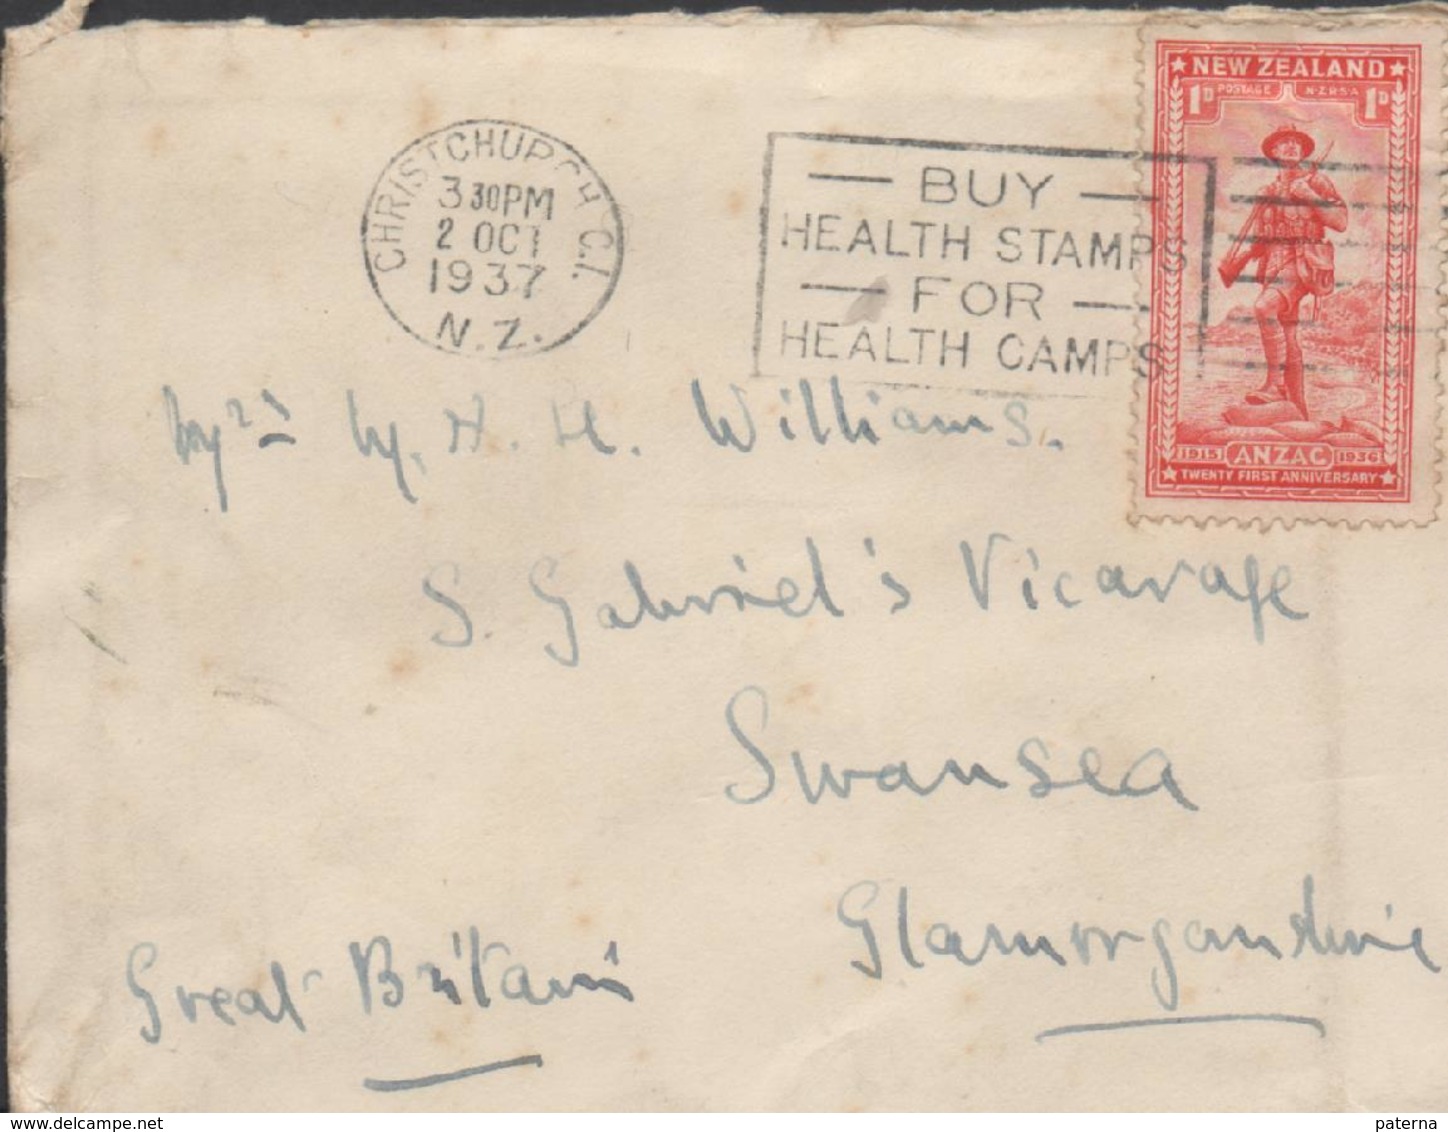 CHRISTCHURCH C.I.
3 30PM
2 OCT
1937
N.Z.
— BUY —
HEALTH STAMPS
— FOR —
HEALTH CAMPS
NEW ZEALAND
1D POSTAGE N.Z.R.S.A 1D
1915 ANZAC 1936
TWENTY FIRST ANNIVERSARY
Mrs W. H. H. Williams.
S. Gabriel's Vicarage
Swansea
Glamorganshire
Great Britain
delcampe.net
paterna